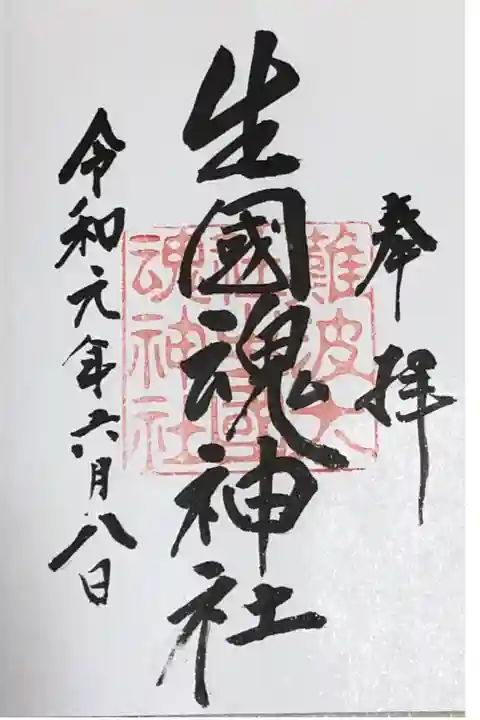 奉拝
生國魂神社
令和元年六月八日
難波大
社生國
魂神社